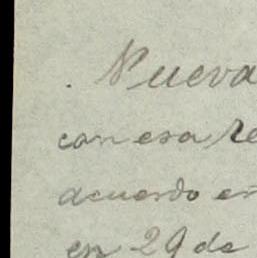 Nueva
con esa re
acuerdo en
en 29 de